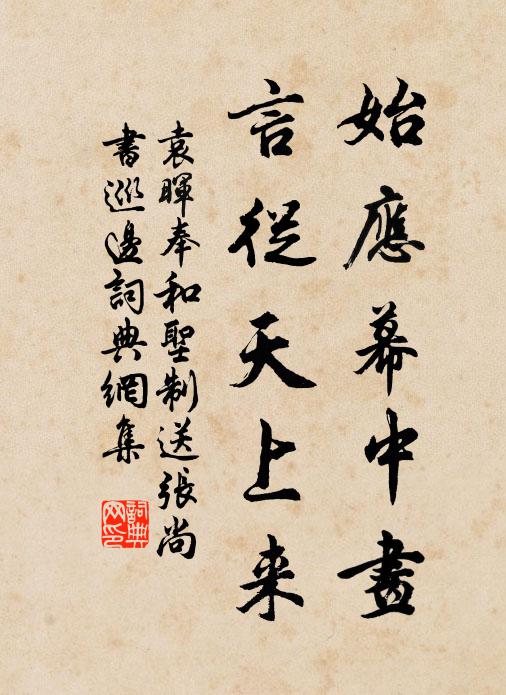 始應幕中畫
言從天上来
袁暉奉和聖制送張尚
書巡邊詞典網集
詞典
网印